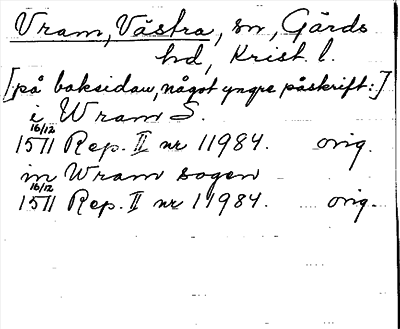 Vram, Västra, sn, Gärds
hd, Krist. l.
[på baksidan, något yngre påskrift:]
i Wram S.
16/12
1511 Rep. II nr 11984. orig.
in Wram sogen
16/12
1511 Rep. II nr 11984. orig.